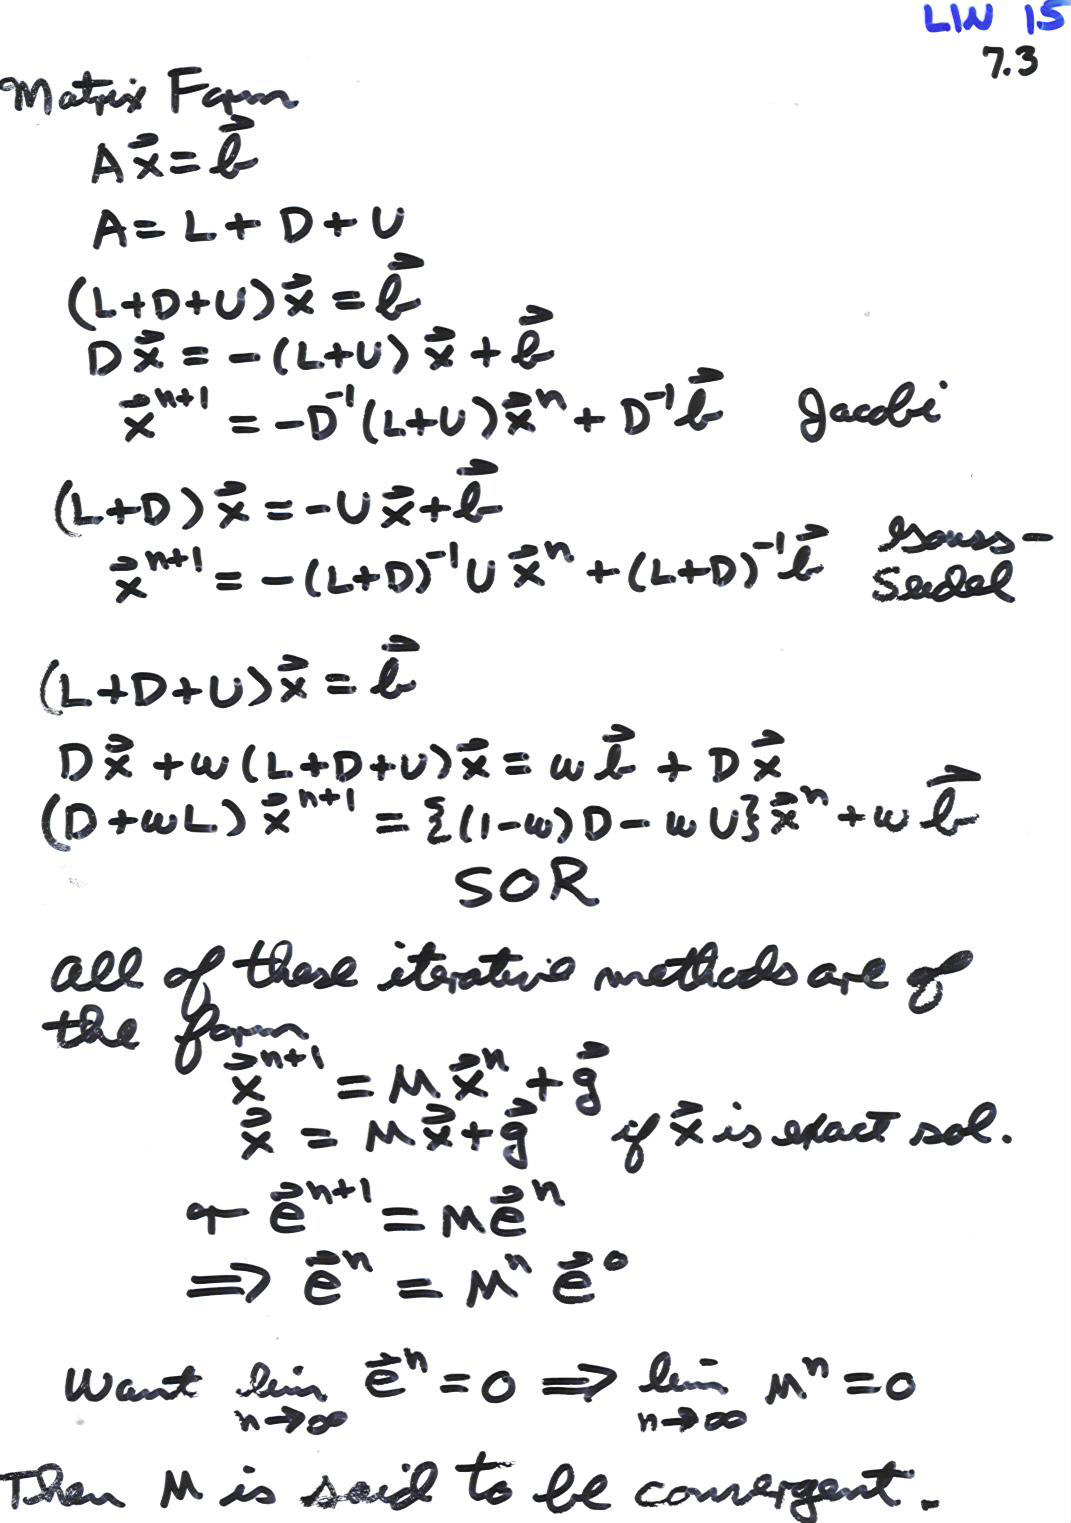 LIN 15
7.3
Matrix Form
A x⃗ = b⃗
A = L + D + U
(L+D+U) x⃗ = b⃗
D x⃗ = -(L+U) x⃗ + b⃗
x⃗ⁿ⁺¹ = -D⁻¹(L+U) x⃗ⁿ + D⁻¹ b⃗ Jacobi
(L+D) x⃗ = -U x⃗ + b⃗
x⃗ⁿ⁺¹ = -(L+D)⁻¹ U x⃗ⁿ + (L+D)⁻¹ b⃗ Gauss-
Seidel
(L+D+U) x⃗ = b⃗
D x⃗ + w(L+D+U) x⃗ = w b⃗ + D x⃗
(D+wL) x⃗ⁿ⁺¹ = {(1-w)D - wU} x⃗ⁿ + w b⃗
SOR
All of these iterative methods are of
the form
x⃗ⁿ⁺¹ = M x⃗ⁿ + g⃗
x⃗ = M x⃗ + g⃗ if x⃗ is exact sol.
or e⃗ⁿ⁺¹ = M e⃗ⁿ
⇒ e⃗ⁿ = Mⁿ e⃗⁰
Want lim e⃗ⁿ = 0 ⇒ lim Mⁿ = 0
n→∞ n→∞
Then M is said to be convergent.